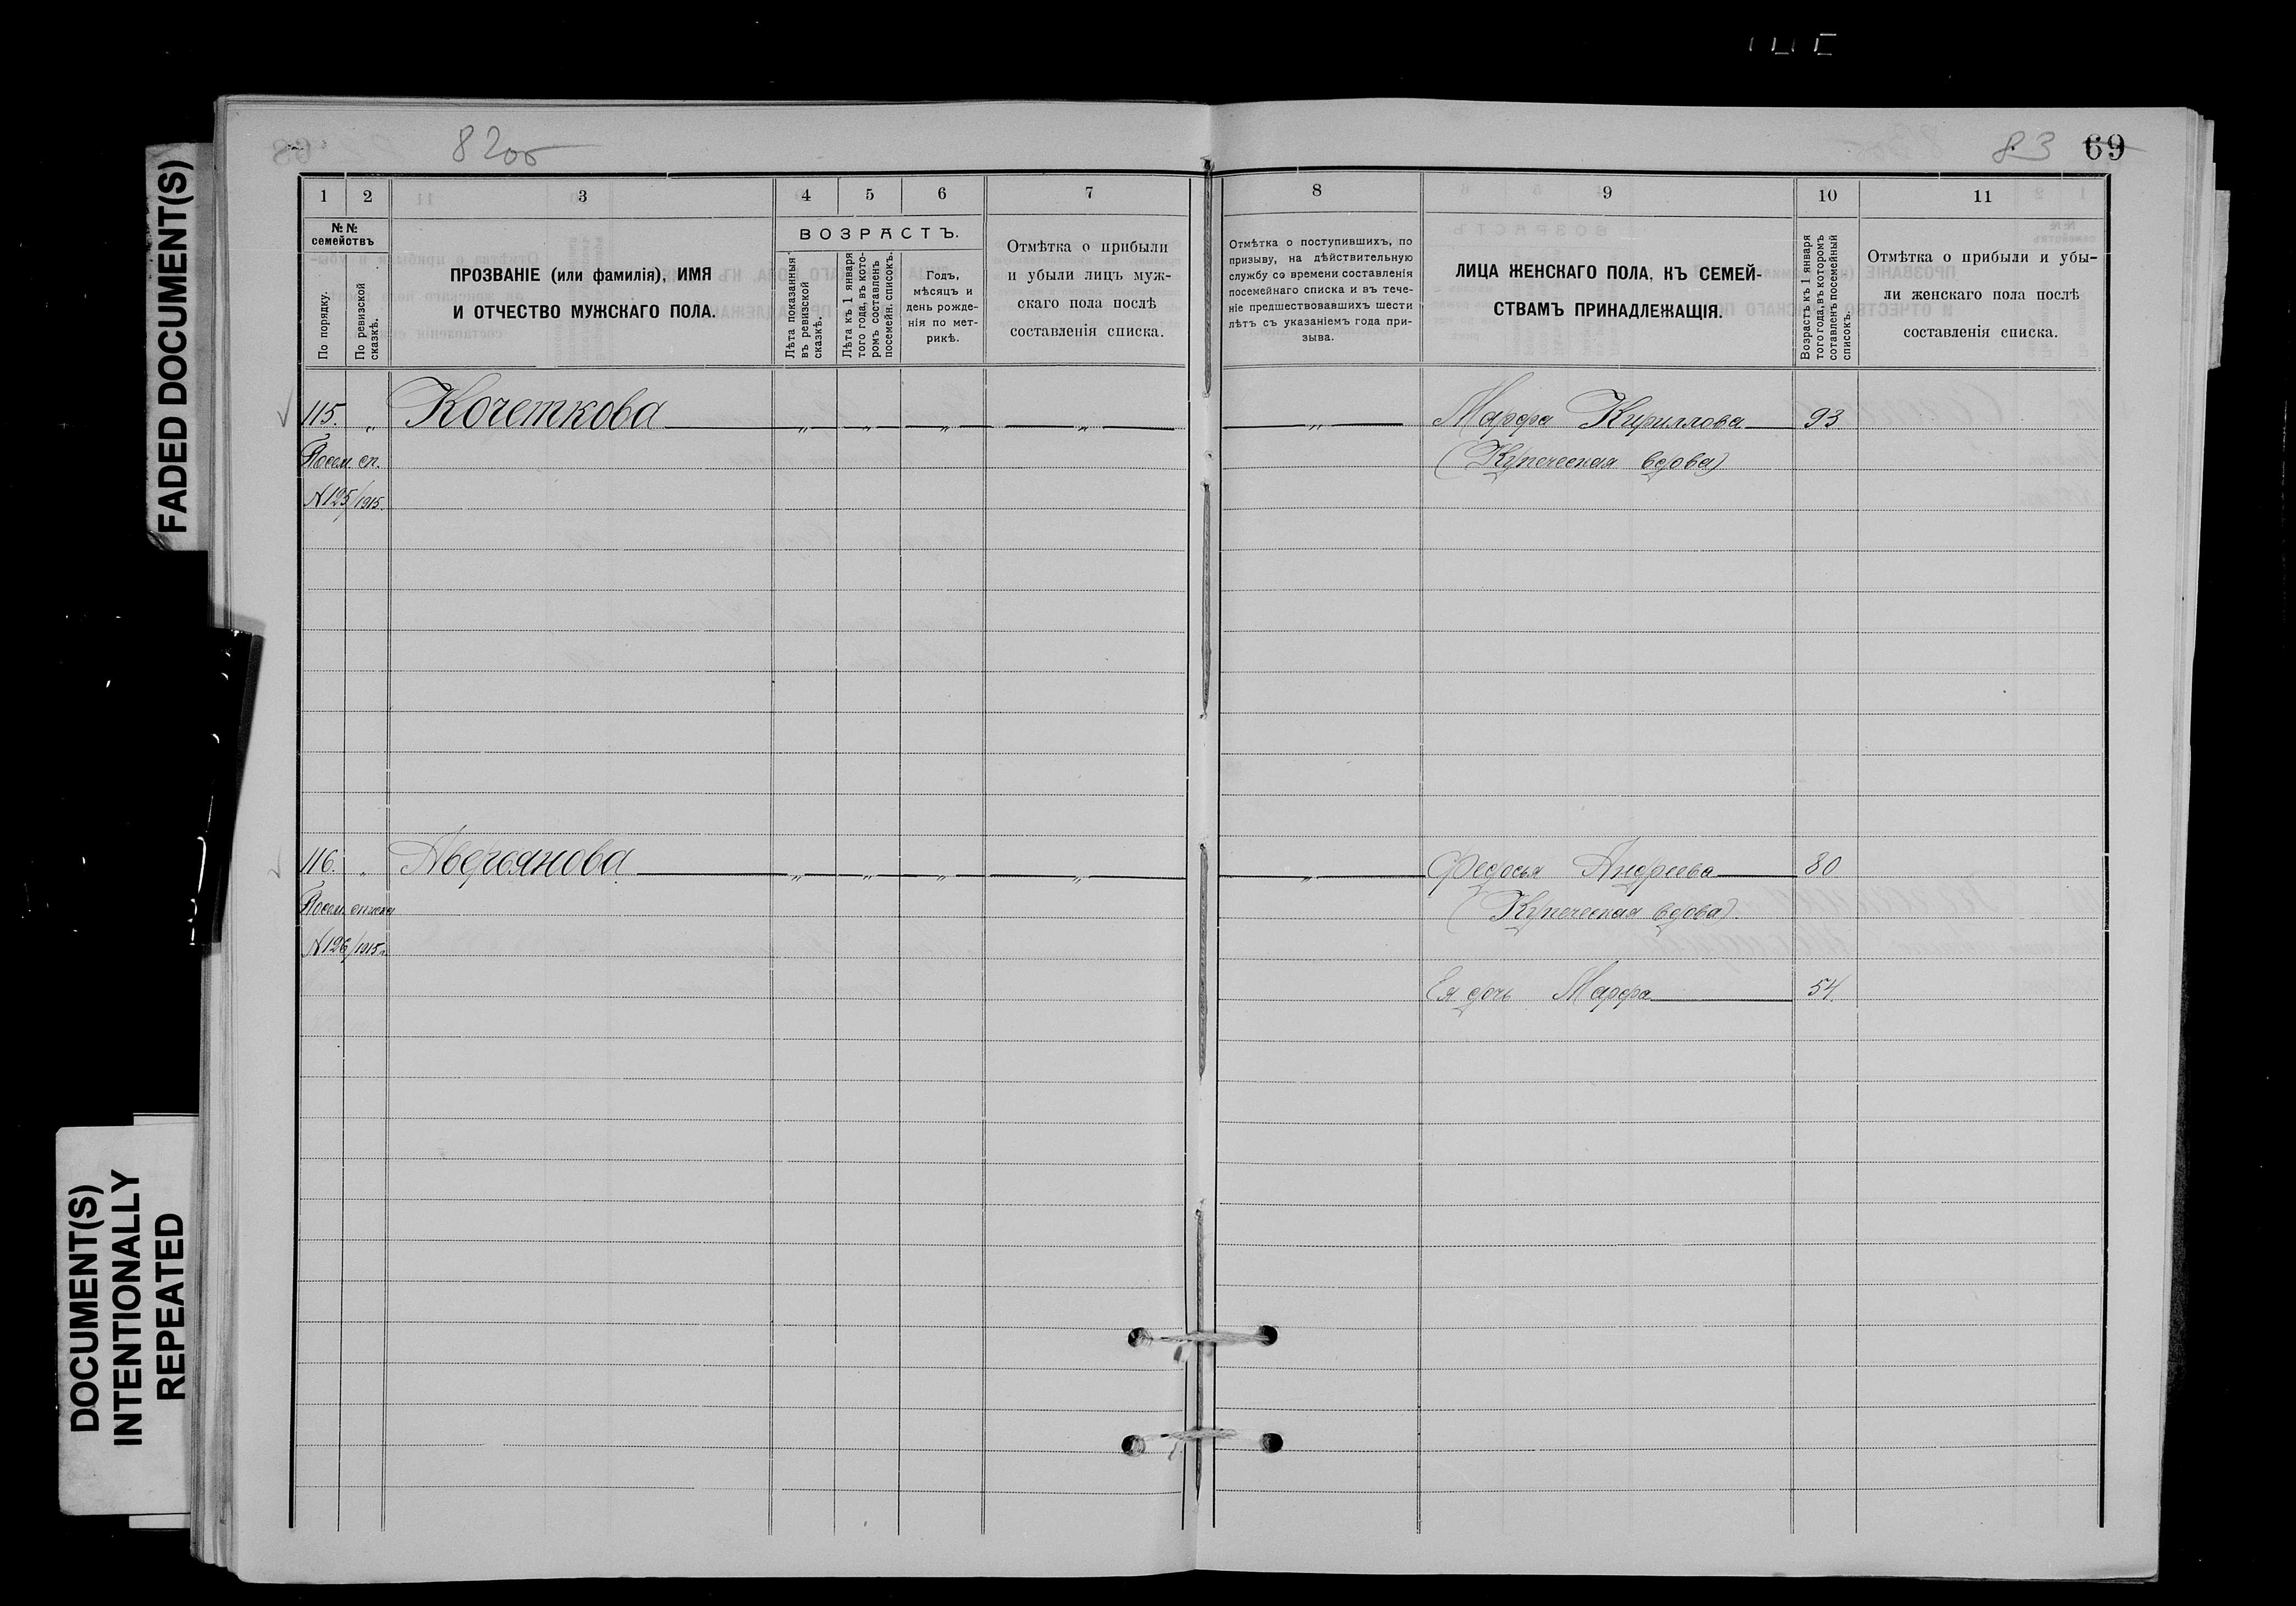 FADED DOCUMENT(S)
DOCUMENT(S)
INTENTIONALLY
REPEATED
82об
83 69
1 2 3 4 5 6 7
№ №
семействъ
По порядку.
По ревизской
сказкѣ.
ПРОЗВАНІЕ (или фамилія), ИМЯ
И ОТЧЕСТВО МУЖСКАГО ПОЛА.
ВОЗРАСТЪ.
Лѣта показанныя
въ ревизской
сказкѣ.
Лѣта къ 1 января
того года, въ кото-
ромъ составленъ
посемейн. списокъ.
Годъ,
мѣсяцъ и
день рожде-
нія по мет-
рикѣ.
Отмѣтка о прибыли
и убыли лицъ муж-
скаго пола послѣ
составленія списка.
8 9 10 11
Отмѣтка о поступившихъ, по
призыву, на дѣйствительную
службу со времени составленія
посемейнаго списка и въ тече-
ніе предшествовавшихъ шести
лѣтъ съ указаніемъ года при-
зыва.
ЛИЦА ЖЕНСКАГО ПОЛА, КЪ СЕМЕЙ-
СТВАМЪ ПРИНАДЛЕЖАЩІЯ.
Возрастъ къ 1 января
того года, въ которомъ
сотавленъ посемейный
списокъ.
Отмѣтка о прибыли и убы-
ли женскаго пола послѣ
составленія списка.
115. „ Кочеткова „ „ „ „ „ Марфа Кириллова 93
Посем. сп. (Купеческая вдова)
№ 125/1915.
116. „ Аверьянова „ „ „ „ „ Федосья Андреева 80
Посем. списка (Купеческая вдова).
№ 126/1915 г.
Ея дочь Марфа 54